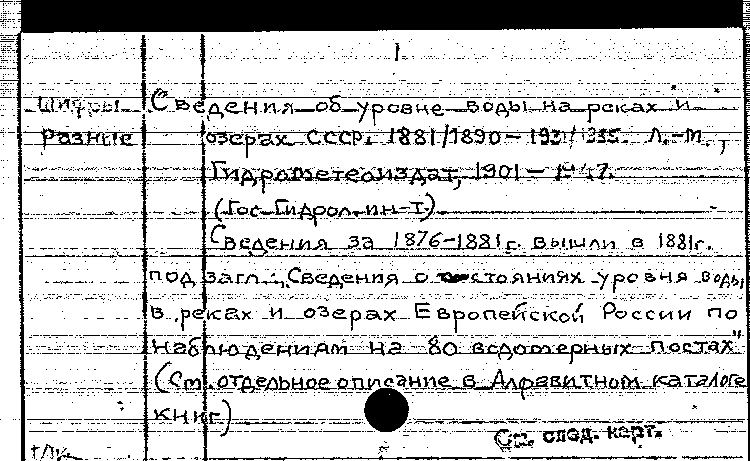 1.
Шифры Сведения об уровне воды на реках и
разные озерах СССР. 1881/1890 – 1931/1935. Л.-М.,
Гидрометеоиздат, 1901 – 1947.
(Гос. Гидрол. ин-т)
Сведения за 1876–1881г. вышли в 1881г.
под загл.: „Сведения о стояниях уровня воды
в реках и озерах Европейской России по
наблюдениям на 80 водомерных постах"
(См. отдельное описание в Алфавитном каталоге
книг)
См. след. карт.